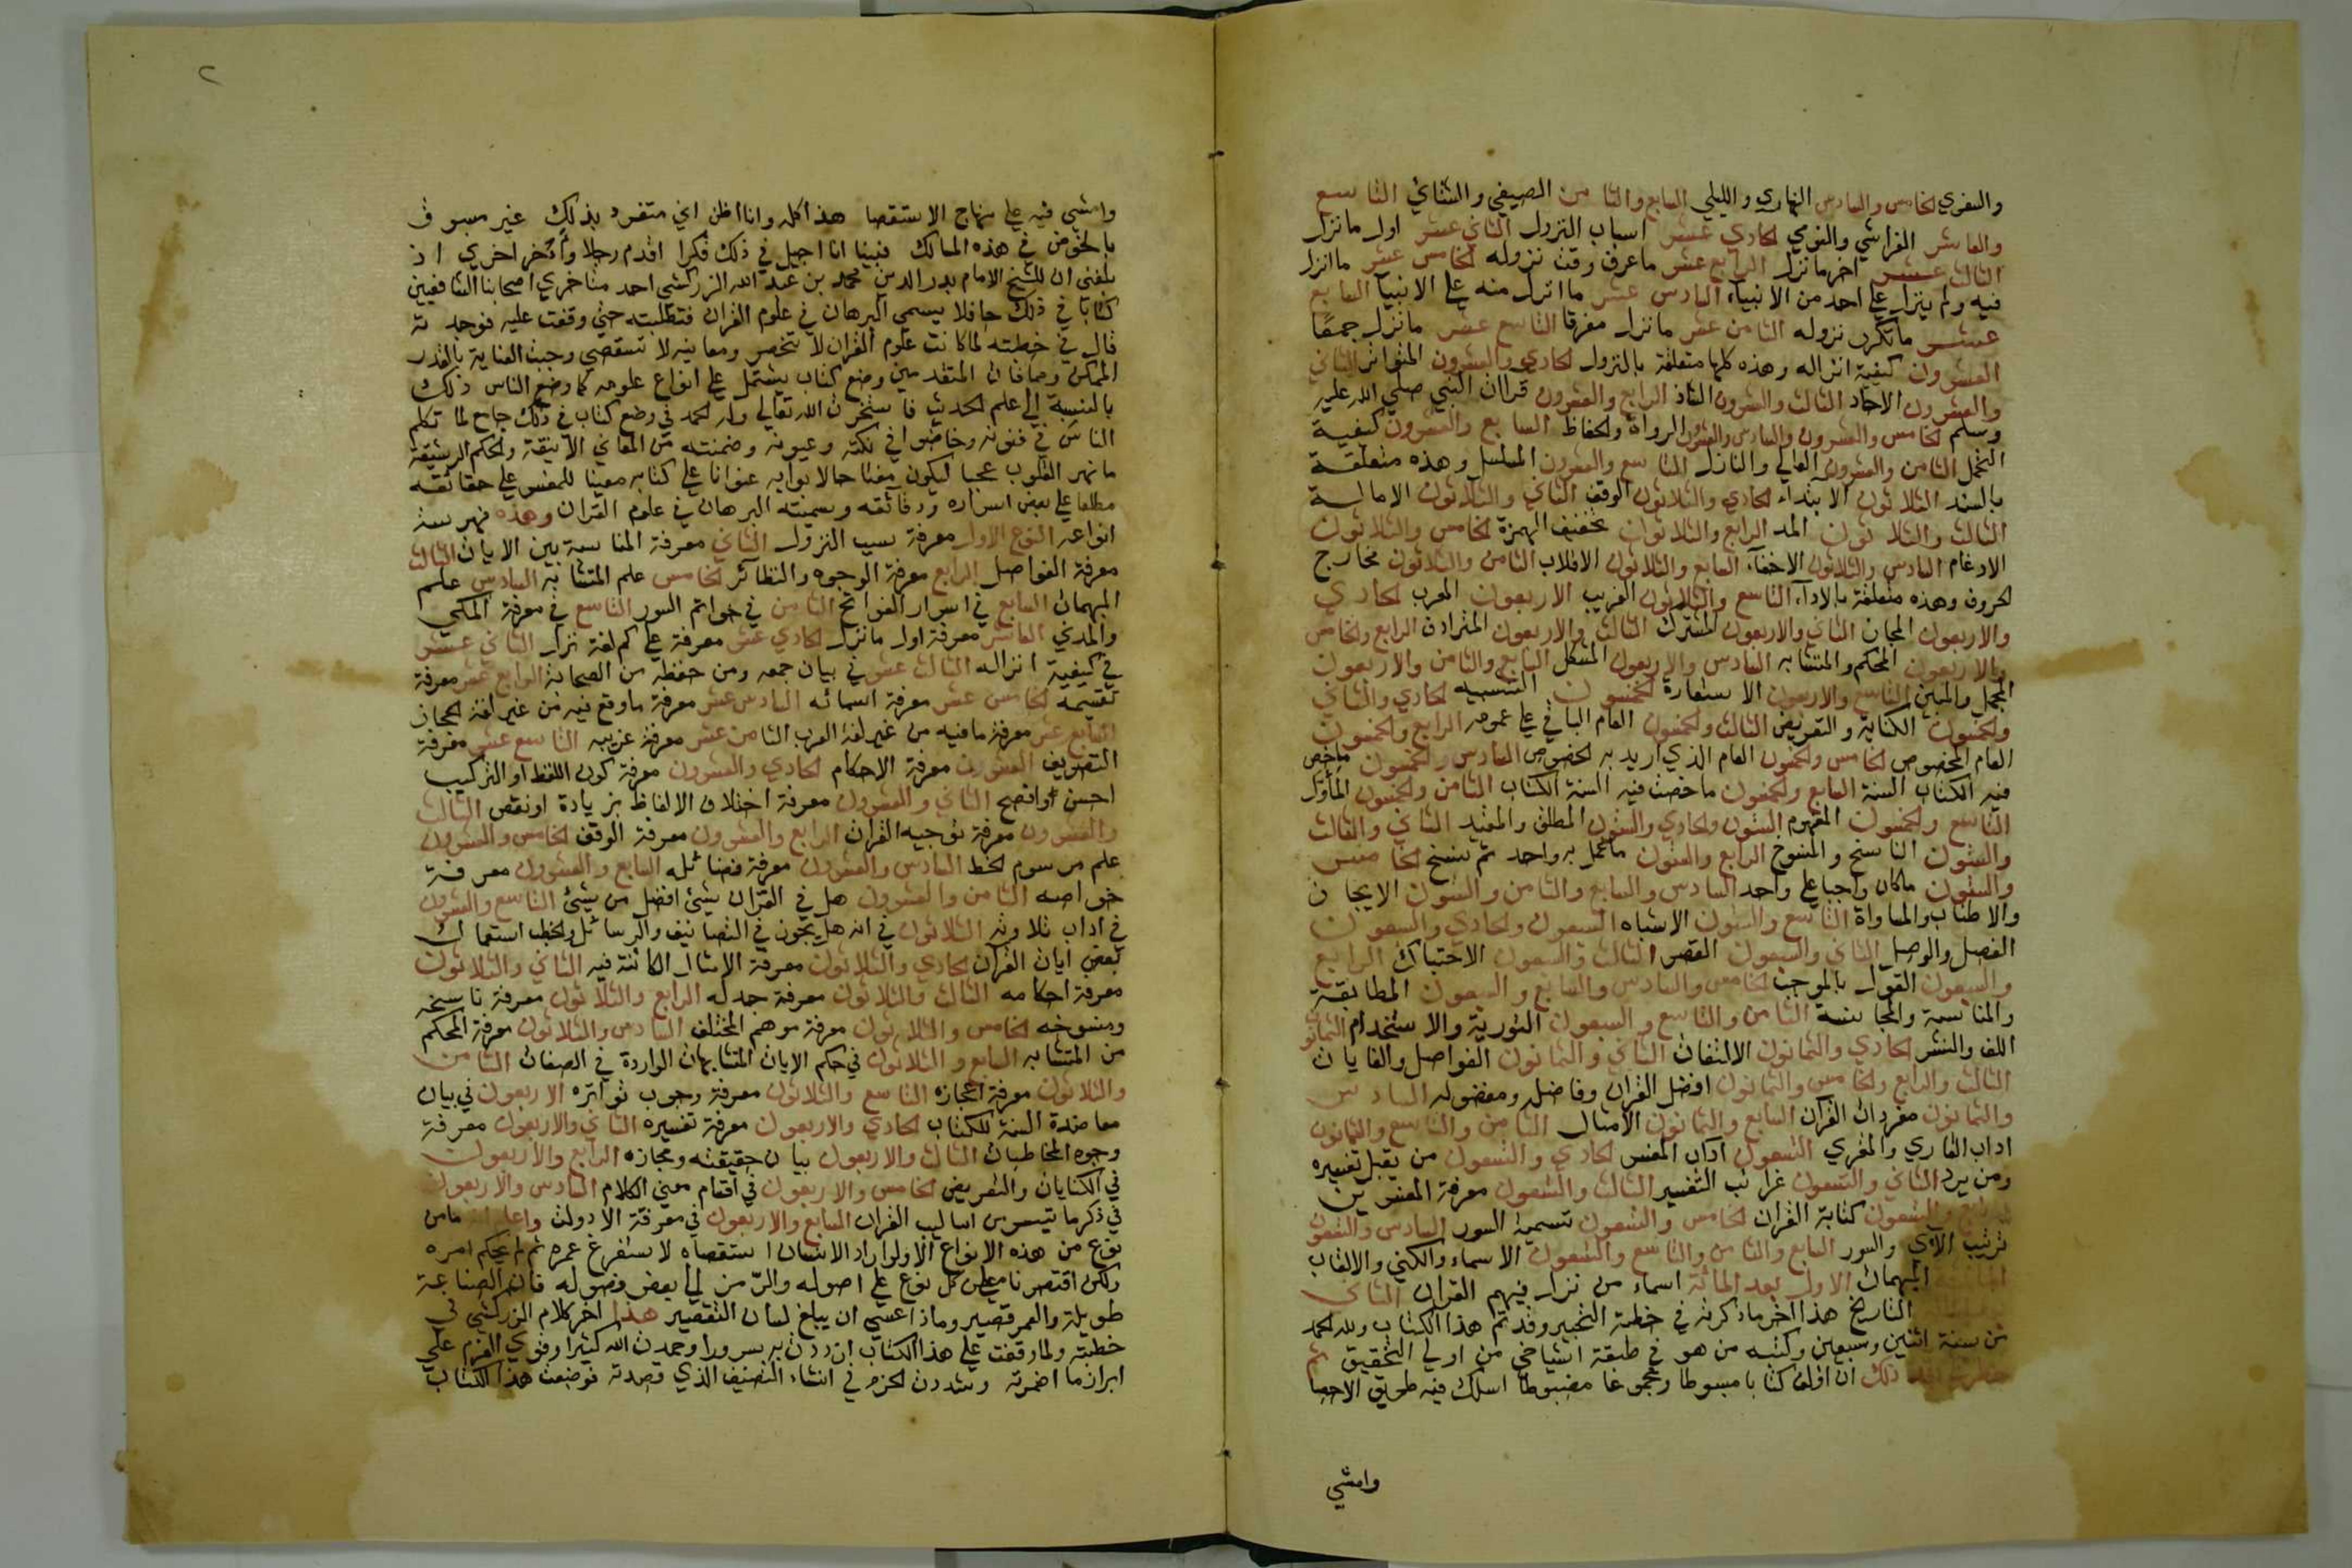 والسفري الخامس والسادس النهاري والليلي السابع والثامن الصيفي والشتائي التاسع
والعاشر الفراشي والنومي الحادي عشر اسباب النزول الثاني عشر اول ما نزل
الثالث عشر اخر ما نزل الرابع عشر ما عرف وقت نزوله الخامس عشر ما انزل
فيه ولم ينزل على احد من الانبياء السادس عشر ما انزل منه على الانبيآ السابع
عشر ما تكرر نزوله الثامن عشر ما نزل مفرقا التاسع عشر ما نزل جمعًا
العشرون كيفية انزاله وهذه كلها متعلقة بالنزول الحادي والعشرون المتواتر الثاني
والعشرون الاحاد الثالث والعشرون الشاذ الرابع والعشرون قراات النبي صلى الله عليه
وسلم الخامس والعشرون والسادس والعشرون الرواة والحفاظ السابع والعشرون كيفية
التحمل الثامن والعشرون العالي والنازل التاسع والعشرون المسلسل وهذه متعلقة
بالسند الثلاثون الابتداء الحادي والثلاثون الوقف الثاني والثلاثون الامالة
الثالث والثلاثون المد الرابع والثلاثون تخفيف الهمزة الخامس والثلاثون
الادغام السادس والثلاثون الاخفآء السابع والثلاثون الاقلاب الثامن والثلاثون مخارج
الحروف وهذه متعلقة بالادآء التاسع والثلاثون الغريب الاربعون المعرب الحادي
والاربعون المجاز الثاني والاربعون المشترك الثالث والاربعون المترادف الرابع والخامس
والاربعون المحكم والمتشابه السادس والاربعون المشكل السابع والثامن والاربعون
المجمل والمبين التاسع والاربعون الاستعارة الخمسون التشبيه الحادي والثاني
والخمسون الكناية والتعريض الثالث والخمسون العام الباقي على عمومه الرابع والخمسون
العام المخصوص الخامس والخمسون العام الذي اريد به الخصوص السادس والخمسون ما خص
فيه الكتاب السنة السابع والخمسون ما خصت فيه السنة الكتاب الثامن والخمسون المأول
التاسع والخمسون المفهوم الستون والحادي والستون المطلق والمقيد الثاني والثالث
والستون الناسخ والمنسوخ الرابع والستون ما عمل به واحد ثم نسخ الخامس
والستون ما كان واجبا على واحد السادس والسابع والثامن والستون الايجاز
والاطناب والمساواة التاسع والستون الاشباه السبعون والحادي والسبعون
الفصل والوصل الثاني والسبعون القصر الثالث والسبعون الاحتباك الرابع
والسبعون القول بالموجب الخامس والسادس والسابع والسبعون المطابقة
والمناسبة والمجانسة الثامن والتاسع والسبعون التورية والاستخدام الثمانون
اللف والنشر الحادي والثمانون الالتفات الثاني والثمانون الفواصل والغايات
الثالث والرابع والخامس والثمانون افضل القران وفاضله ومفضوله السادس
والثمانون مفردات القرآن السابع والثمانون الامثال الثامن والتاسع والثمانون
اداب القاري والمقري التسعون اداب المفسر الحادي والتسعون من يقبل تفسيره
ومن يرد الثاني والتسعون غرائب التفسير الثالث والتسعون معرفة المفسرين
الرابع والتسعون كتابة القران الخامس والتسعون تسمية السور السادس والتسعون
ترتيب الآي والسور السابع والثامن والتاسع والتسعون الاسماء والكنى والالقاب
المائة المبهمات الاول بعد المائة اسماء من نزل فيهم القران الثاني
التاريخ هذا اخر ما ذكرته في خطبة التحبير وقد تم هذا الكتاب ولله الحمد
من سنة اثنين وسبعين وكتبه من هو في طبقة اشياخي من اولي التحقيق ثم
خطر لي بعد ذلك ان اؤلف كتابا مبسوطا ومجموعا مضبوطا اسلك فيه طريق الاحصا
وامشي
٢
وامشي فيه على منهاج الاستقصا هذا كله وانا اظن اني متفرد بذلك غير مسبوق
بالخوض في هذه المسالك فبينا انا اجيل في ذلك فكرا اقدم رجلا وأؤخر اخري اذ
بلغني ان للشيخ الامام بدر الدين محمد بن عبد الله الزركشي احد متاخري اصحابنا الشافعيين
كتابا في ذلك حافلا يسمي البرهان في علوم القران فتطلبته حتى وقفت عليه فوجدته
قال في خطبته لما كانت علوم القران لا تنحصر ومعانيه لا تستقصي وجبت العناية بالقدر
الممكن ومما فات المتقدمين وضع كتاب يشتمل على انواع علومه كما وضع الناس ذلك
بالنسبة الى علم الحديث فاستخرت الله تعالى وله الحمد في وضع كتاب في ذلك جامع لما تكلم
الناس في فنونه وخاضوا في نكته وعيونه وضمنته من المعاني الانيقة والحكم الرشيقة
ما يهر القلوب عجبا ليكون مفتاحا لابوابه عنوانا على كتابه معينا للمفسر على حقائقه
مطلعا على بعض اسراره ودقائقه وسميته البرهان في علوم القران وهذه فهرست
انواعه النوع الاول معرفة سبب النزول الثاني معرفة المناسبة بين الايات الثالث
معرفة الفواصل الرابع معرفة الوجوه والنظائر الخامس علم المتشابه السادس علم
المبهمات السابع في اسرار الفواتح الثامن في خواتم السور التاسع في معرفة المكي
والمدني العاشر معرفة اول ما نزل الحادي عشر معرفة على كم لغة نزل الثاني عشر
في كيفية انزاله الثالث عشر في بيان جمعه ومن حفظه من الصحابة الرابع عشر معرفة
تقسيمه الخامس عشر معرفة اسمائه السادس عشر معرفة ما وقع فيه من غير لغة الحجاز
السابع عشر معرفة ما فيه من غير لغة العرب الثامن عشر معرفة غريبه التاسع عشر معرفة
التصريف العشرون معرفة الاحكام الحادي والعشرون معرفة كون اللفظ او التركيب
احسن او افصح الثاني والعشرون معرفة اختلاف الالفاظ بزيادة او نقص الثالث
والعشرون معرفة توجيه القران الرابع والعشرون معرفة الوقف الخامس والعشرون
علم مرسوم الخط السادس والعشرون معرفة فضائله السابع والعشرون معرفة
خواصه الثامن والعشرون هل في القران شيئ افضل من شيئ التاسع والعشرون
في اداب تلاوته الثلاثون في انه هل يجوز في التصانيف والرسائل والخطب استعمال
بعض ايات القران الحادي والثلاثون معرفة الامثال الكائنة فيه الثاني والثلاثون
معرفة احكامه الثالث والثلاثون معرفة جدله الرابع والثلاثون معرفة ناسخه
ومنسوخه الخامس والثلاثون معرفة موهم المختلف السادس والثلاثون معرفة المحكم
من المتشابه السابع والثلاثون في حكم الايات المتشابهات الواردة في الصفات الثامن
والثلاثون معرفة اعجازه التاسع والثلاثون معرفة وجوب تواتره الاربعون في بيان
معاضدة السنة للكتاب الحادي والاربعون معرفة تفسيره الثاني والاربعون معرفة
وجوه المخاطبات الثالث والاربعون بيان حقيقته ومجازه الرابع والاربعون
في الكنايات والتعريض الخامس والاربعون في اقسام معني الكلام السادس والاربعون
في ذكر ما تيسر من اساليب القران السابع والاربعون في معرفة الادوات واعلم انه ما من
نوع من هذه الانواع الا ولو اراد الانسان استقصاه لاستفرغ عمره ثم لم يحكم امره
ولكن اقتصرنا من كل نوع على اصوله والرّمز الى بعض فصوله فان الصناعة
طويلة والعمر قصير وماذا عسي ان يبلغ لسان التقصير هذا اخر كلام الزركشي في
خطبته ولما وقفت على هذا الكتاب ازددت به سرورا وحمدت الله كثيرا وقوي العزم على
ابراز ما اضمرته وشددت الحزم في انشاء التصنيف الذي قصدته فوضعت هذا الكتاب